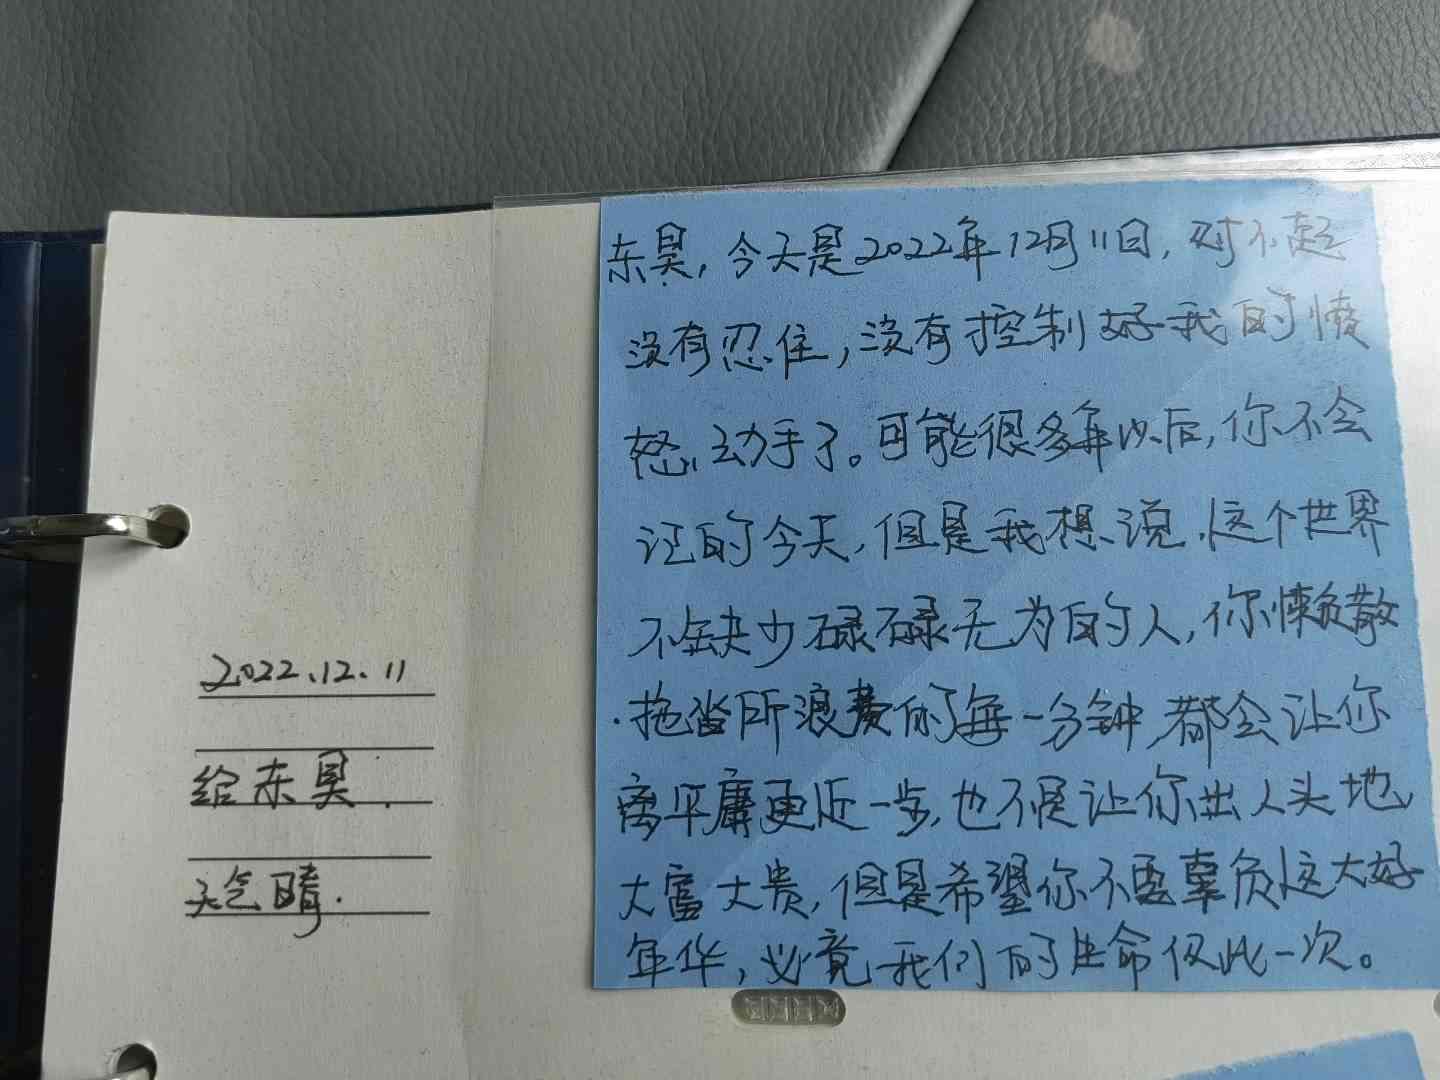 2022.12.11
给东昊.
天气晴.
东昊,今天是2022年12月11日,对不起
没有忍住,没有控制好我的愤
怒,动手了。可能很多年以后,你不会
记的今天,但是我想说,这个世界
不缺少碌碌无为的人,你懒散
拖沓所浪费的每一分钟都会让你
离平庸更近一步,也不是让你出人头地
大富大贵,但是希望你不要辜负这大好
年华,必竟我们的生命仅此一次。